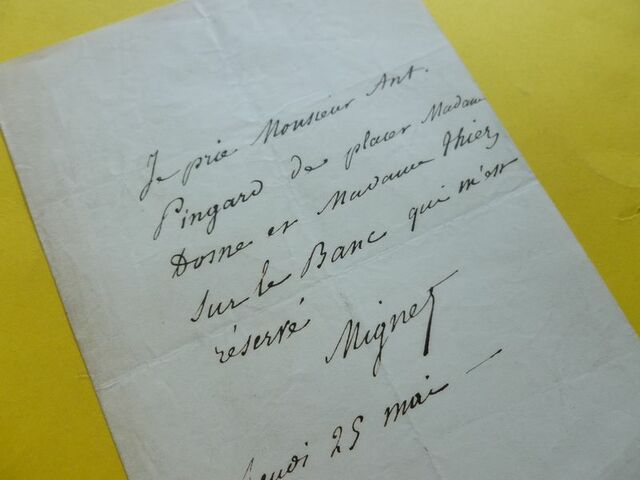 Je prie Monsieur Ant.
Pingard de placer Madame
Dosne et Madame Thiers
sur le Banc qui m'est
réservé
Mignet
Jeudi 25 mai